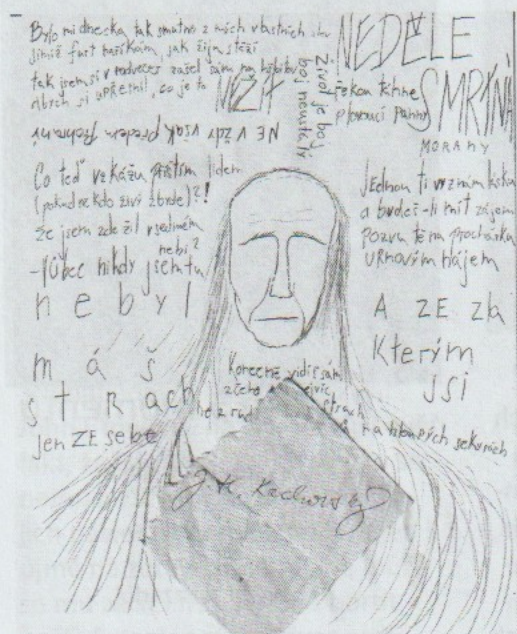 Bylo mi dnecka tak smutno z mích vlastních slov
jimiž furt naříkám, jak žiju stěží
tak jsem si v podvečer zašel sám na hřbitov
abych si upřetnil, co je to
NEŽÍT
NE vždy však předem
Život je boj
boj neustálý
NEDĚLE
SMRTNÁ
řekou táhne
plovoucí panny
MORANY
Co teď vzkážu příštím lidem
(pokud někdo živý zbude)?!
že jsem zde žil v sedmém
nebi?
-vůbec nikdy jsem tu
nebyl
Jednou ti vyznám lásku
a budeš-li mít zájem
pozvu tě na procházku
URNOVÝM hájem
A ZE ZLA
Kterým
jsi
máš
stRach
jen ZE sebe
Konečně vidíš sám
z čeho
strach
na hloupých sekerách